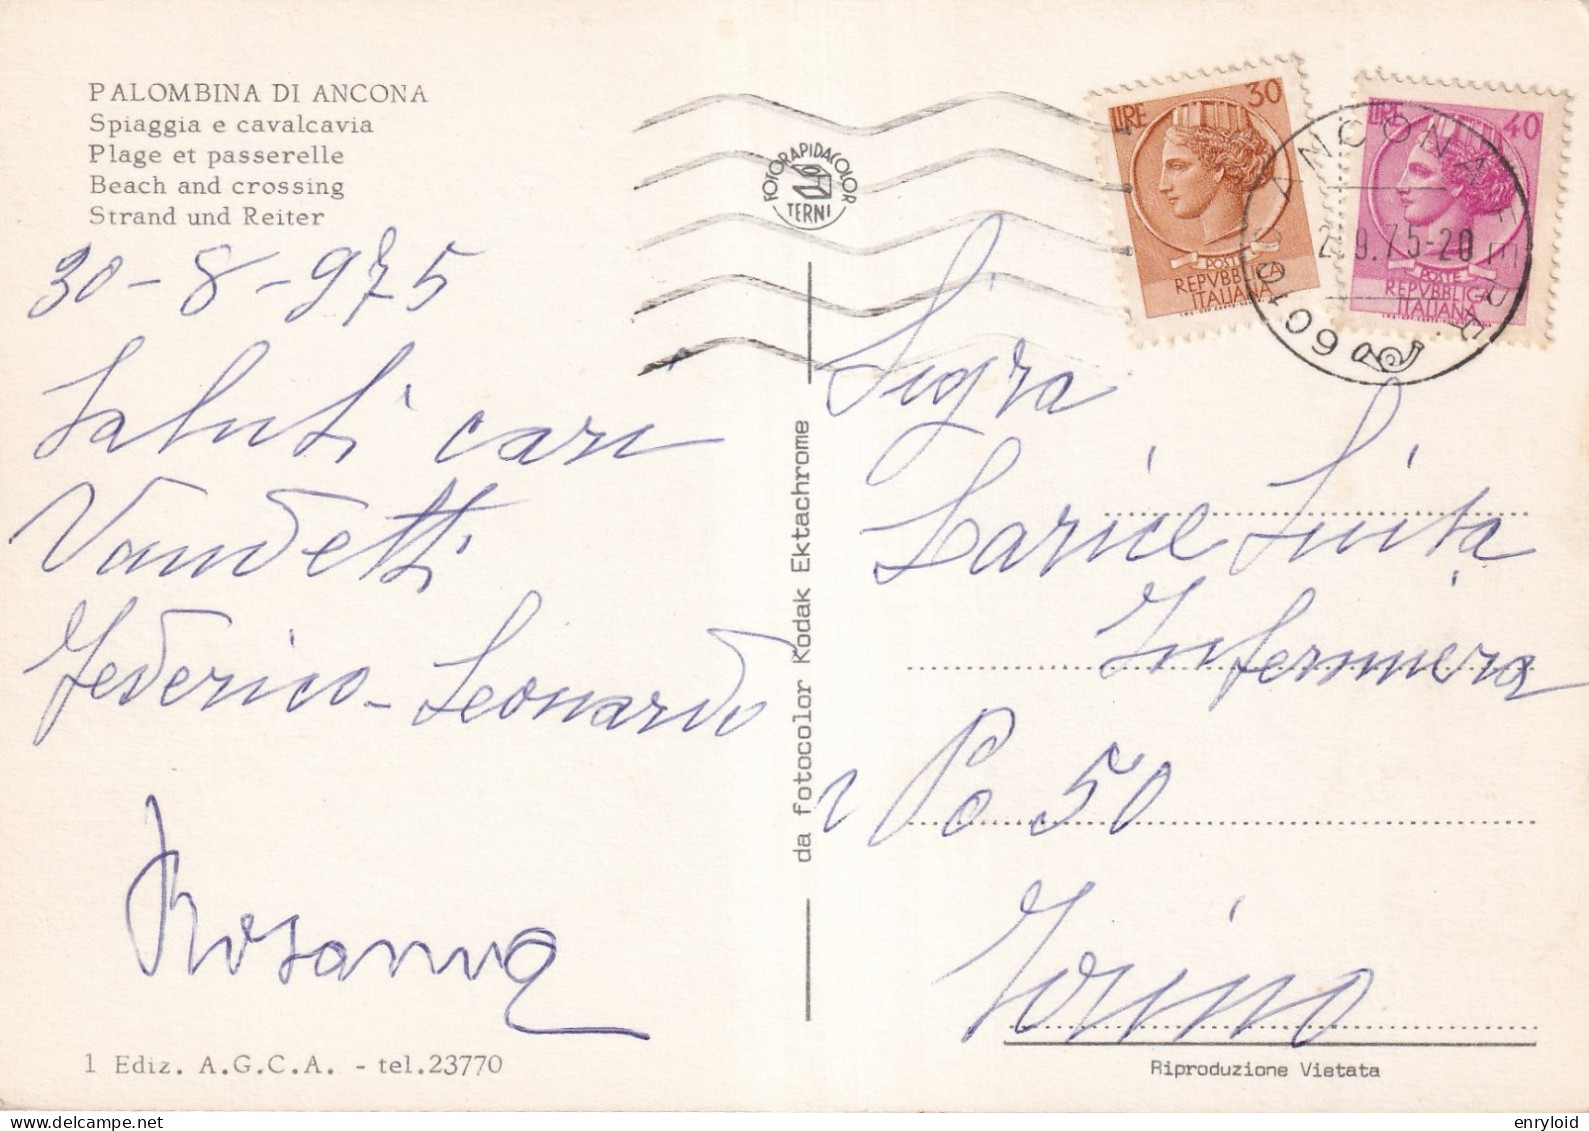 PALOMBINA DI ANCONA
Spiaggia e cavalcavia
Plage et passerelle
Beach and crossing
Strand und Reiter
30-8-975
Saluti cari
Vandetti
Federico - Leonardo
Rosanna
1 Ediz. A.G.C.A. - tel.23770
FOTORAPIDACOLOR
TERNI
da fotocolor Kodak Ektachrome
LIRE 30
POSTE
REPVBBLICA
ITALIANA
LIRE 40
POSTE
REPVBBLICA
ITALIANA
ANCONA
.9.75-20
Sigra
Larice Luisa
Infermiera
Po 50
Torino
Riproduzione Vietata
enryloid